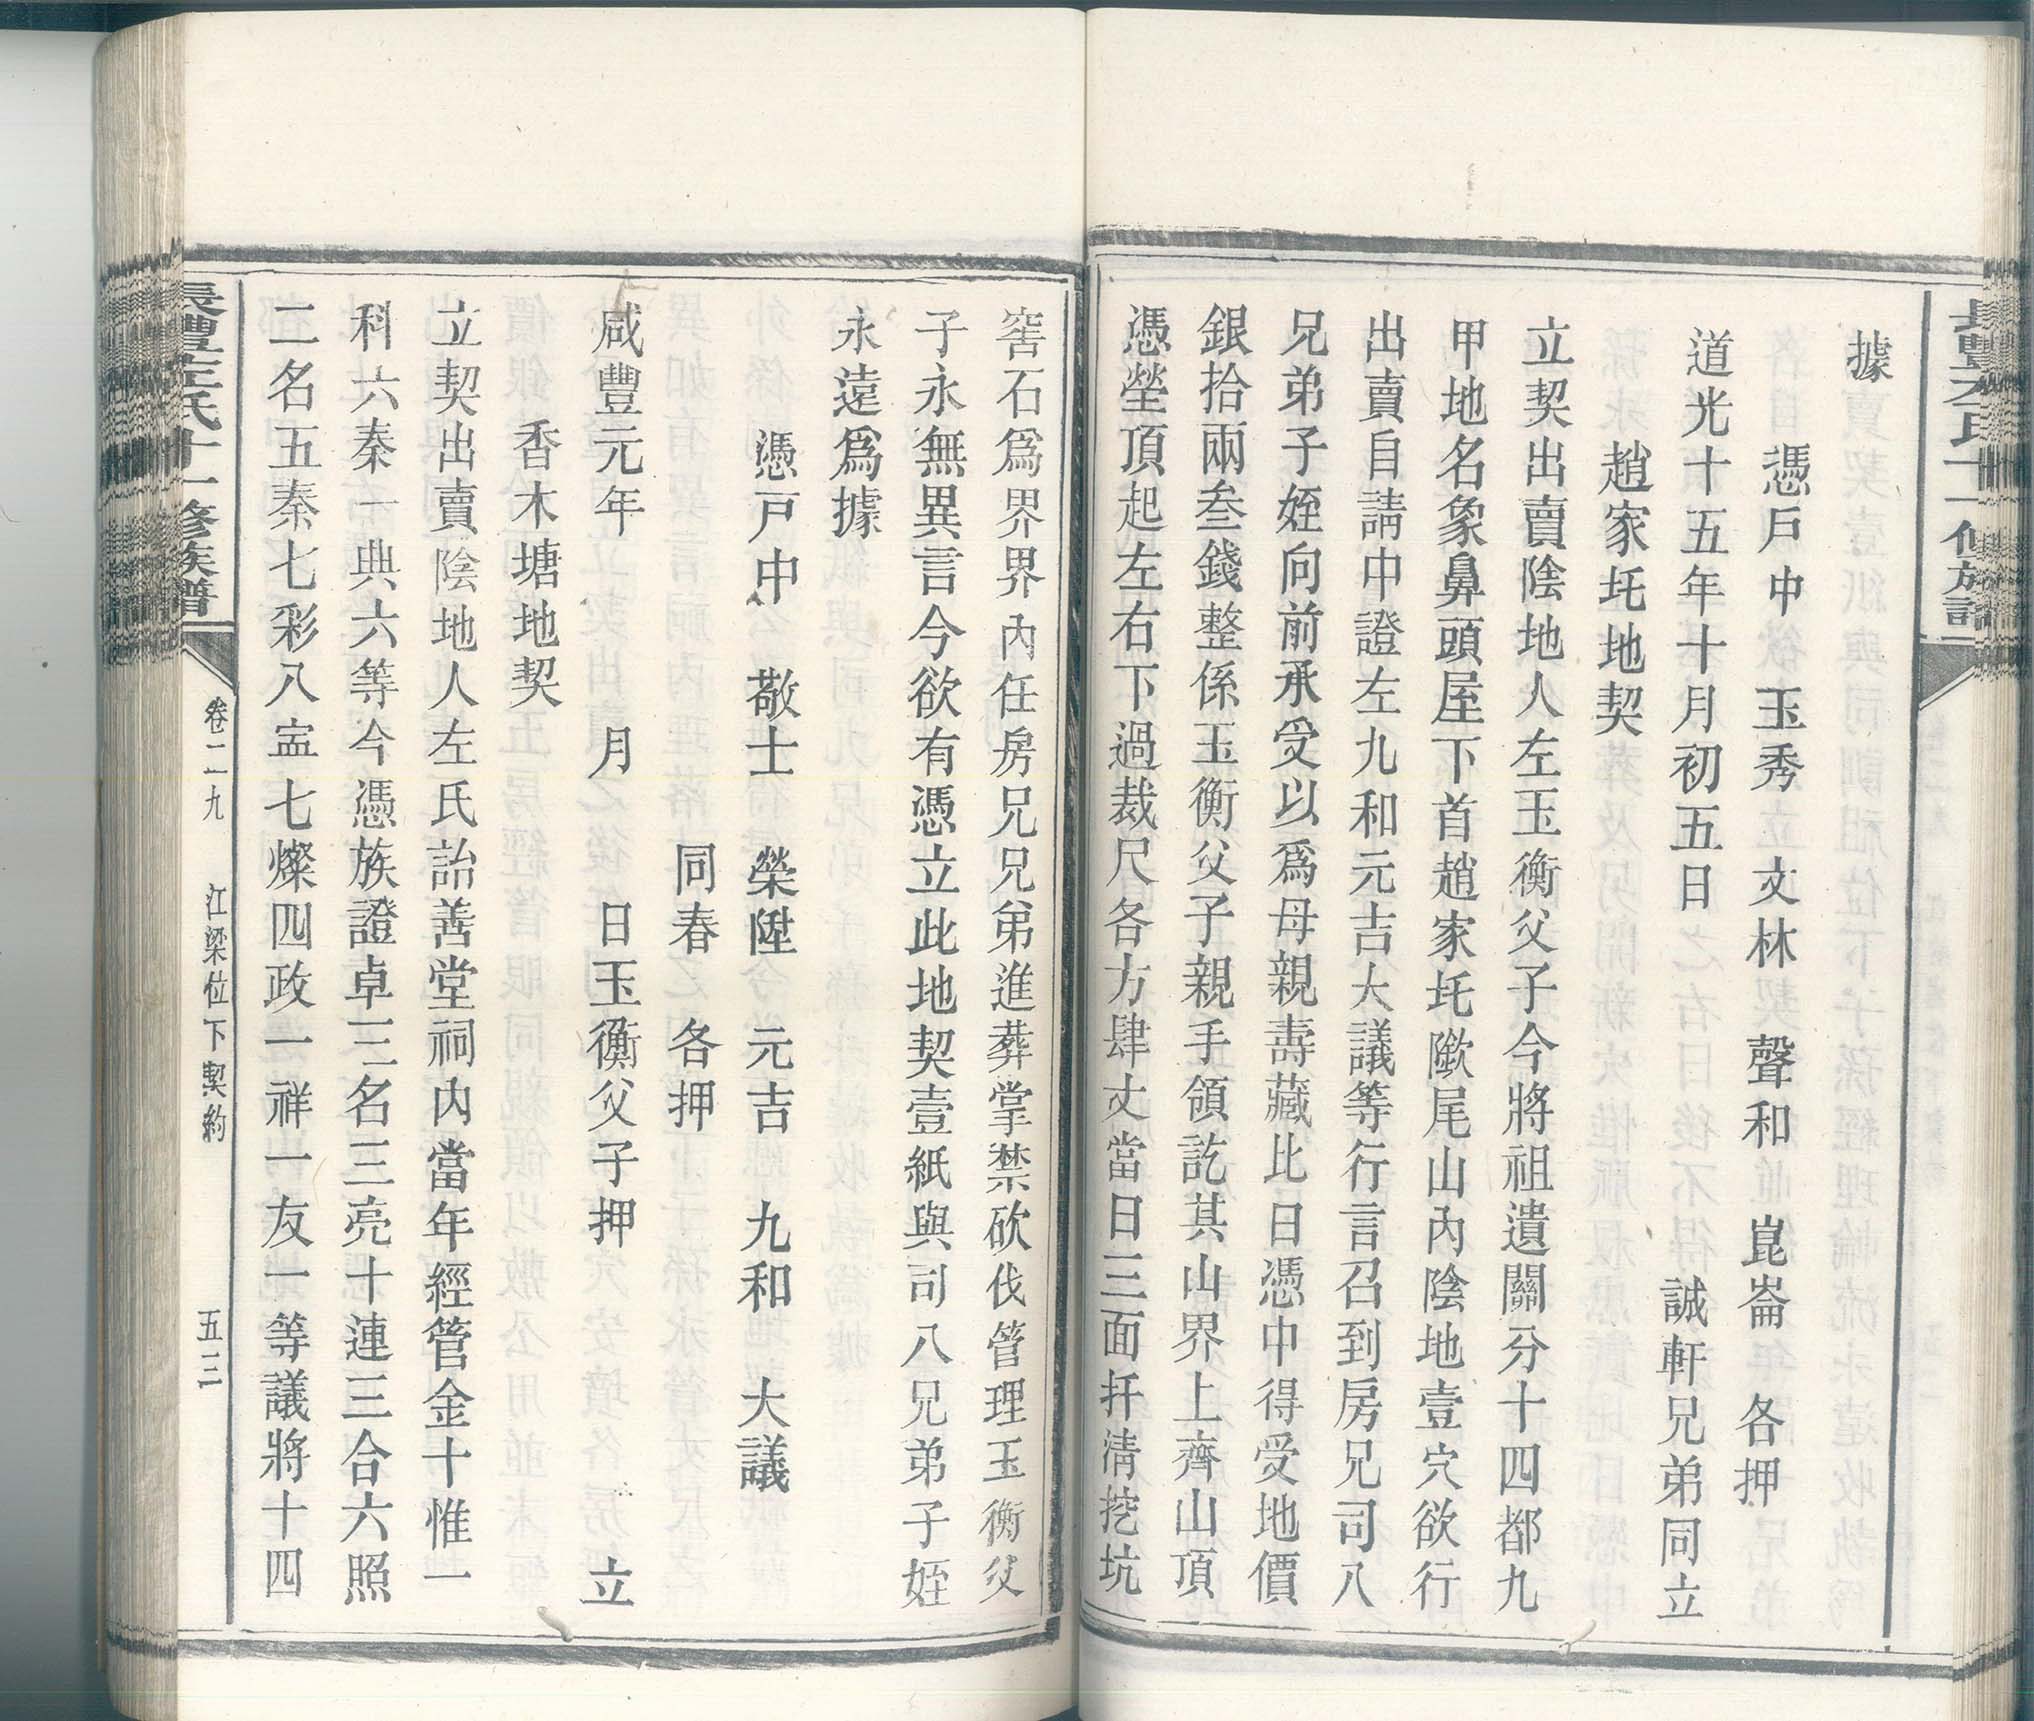 據
憑戶中　玉秀　文林　聲和　崑崙　各押
道光十五年十月初五日　誠軒兄弟同立
趙家圫地契
立契出賣陰地人左玉衡父子今將祖遺關分十四都九
甲地名象鼻頭屋下首趙家圫歐尾山內陰地壹穴欲行
出賣自請中證左九和元吉大議等行言召到房兄司八
兄弟子姪向前承受以為母親壽藏比日憑中得受地價
銀拾兩叁錢整係玉衡父子親手領訖其山界上齊山頂
憑塋頂起左右下過裁尺各方肆丈當日三面扦清挖坑
窖石爲界界內任房兄兄弟進葬掌禁砍伐管理玉衡父
子永無異言今欲有憑立此地契壹紙與司八兄弟子姪
永遠爲據
憑戶中　敬士　榮陞　元吉　九和　大議
同春　各押
咸豐元年　月　日玉衡父子押　立
香木塘地契
立契出賣陰地人左氏詒善堂祠內當年經管金十惟一
科六秦一典六等今憑族證卓三名三亮十連三合六照
二名五秦七彩八盂七燦四政一祥一友一等議將十四
長豐左氏十一修族譜
卷二九　江梁位下契約　五三